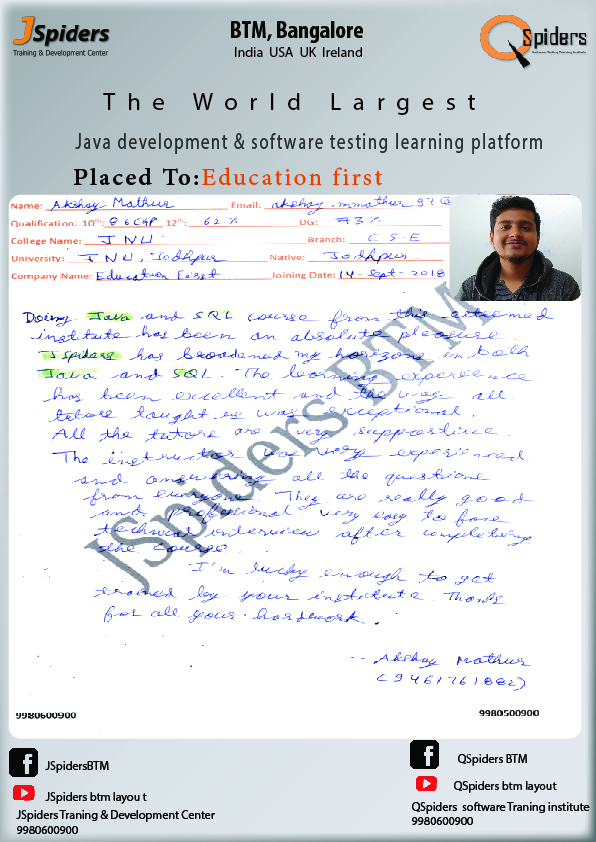 JSpiders
Training & Development Center
BTM, Bangalore
India USA UK Ireland
QSpiders
Software Testing Training Institute
The World Largest
Java development & software testing learning platform
Placed To:Education first
Name: Akshay Mathur Email: akshay.mmathur97@
Qualification: 10th: 8.6 CGP 12th: 62.% DG: 73%
College Name: JNU Branch: C S E
University: JNU, Jodhpur Native: Jodhpur
Company Name: Education First Joining Date: 14-Sept-2018
Doing Java and SQL course from this esteemed
institute has been an absolute pleasure.
Jspiders has broadened my horizons in both
Java and SQL. The learning experience
has been excellent and the way all
tutors taught us was exceptional.
All the tutors are very supportive.
The instructor was very experienced
and answering all the questions
from everyone. They are really good
and professional very easy to face
technical interview after completing
the course.
I'm lucky enough to get
trained by your institute. Thanks
for all your hardwork.
-- Akshay Mathur
(9461761882)
JSpiders BTM
9980600900 9980500900
JSpidersBTM
JSpiders btm layou t
JSpiders Traning & Development Center
9980600900
QSpiders BTM
QSpiders btm layout
QSpiders software Traning institute
9980600900